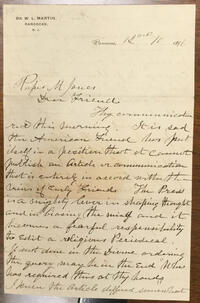 DR. W. L. MARTIN,
RANCOCAS,
N. J.
Rufus M Jones
Dear Friend
Thy communication
rec'd this morning. It is sad
the American Friend has put
itself in a position that it cannot
publish an article or communication
that is entirely in accord with the
views of Early Friends The Press
is a mighty lever in shaping thought
and in biasing the mind and it
becomes a fearful responsibility
to edit a religious Periodical
if not done in the Divine ordering
the query may be in the End Who
has required this at thy hands
I knew the article differed somewhat